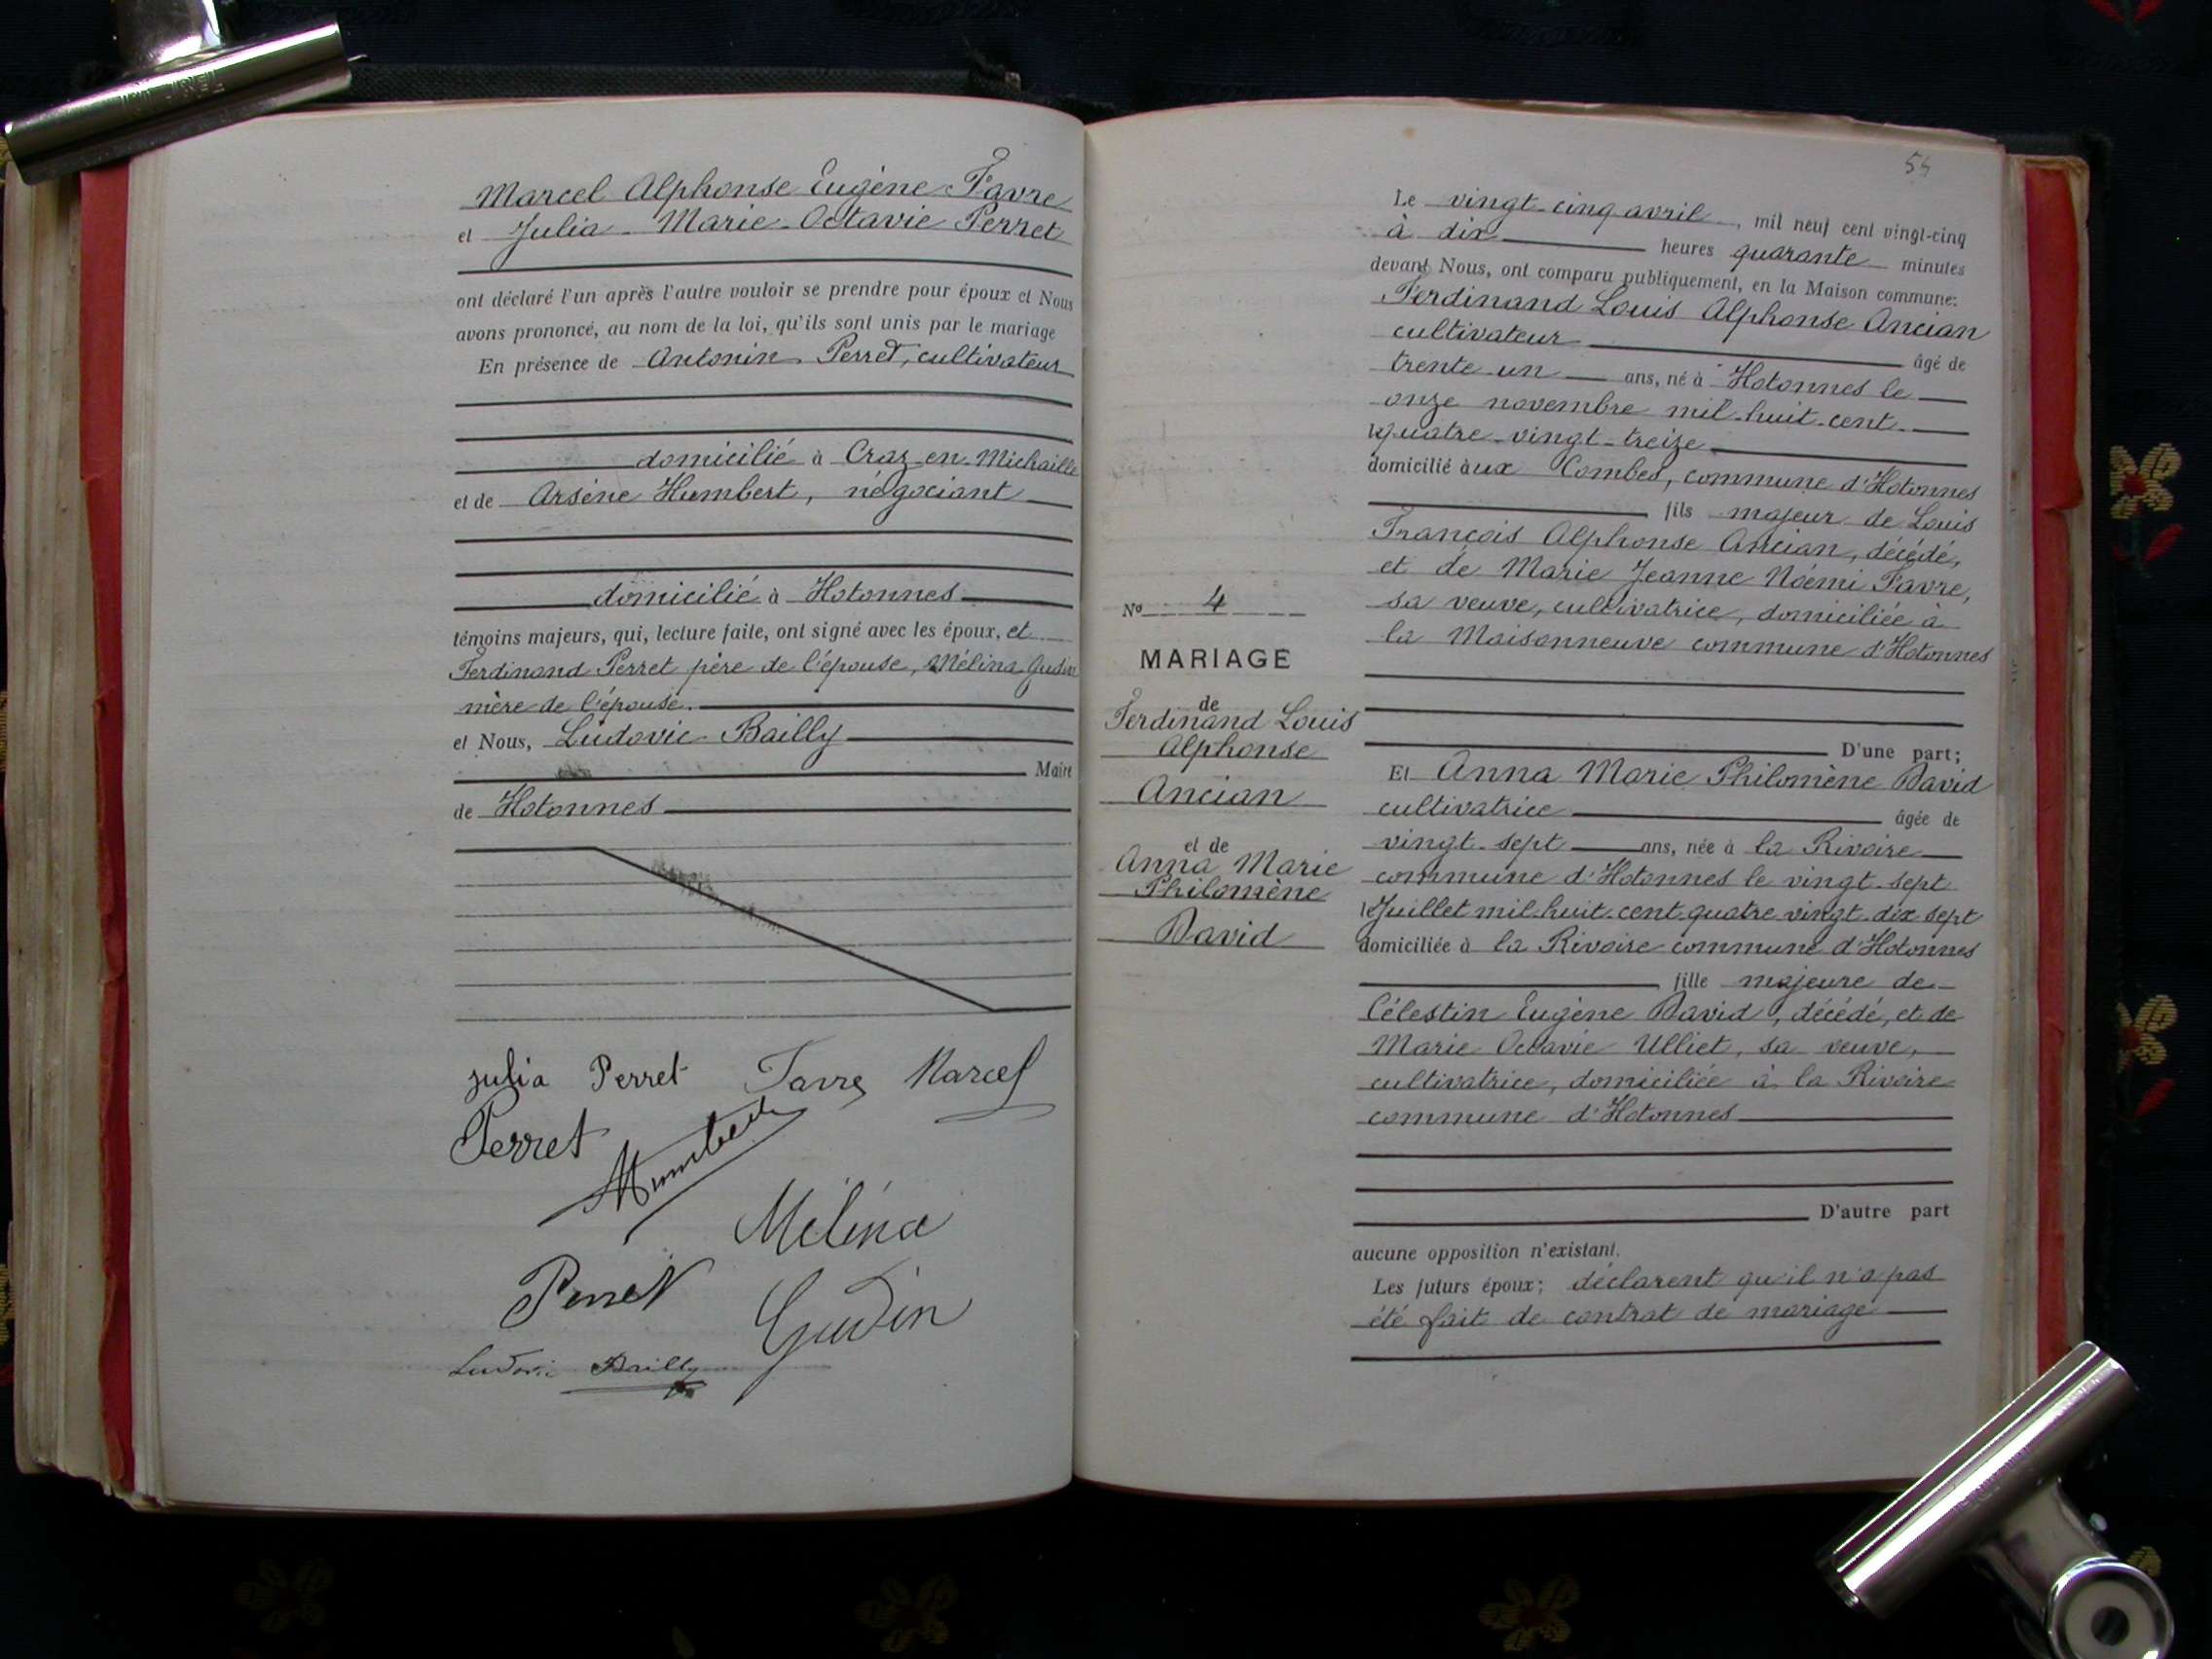 Marcel Alphonse Eugène Favre
et Julia Marie Octavie Perret
ont déclaré l'un après l'autre vouloir se prendre pour époux et Nous
avons prononcé, au nom de la loi, qu'ils sont unis par le mariage
En présence de Antonin Perret, cultivateur
domicilié à Craz-en-Michaille
et de Arsène Humbert, négociant
domicilié à Hotonnes
témoins majeurs, qui, lecture faite, ont signé avec les époux, et
Ferdinand Perret père de l'épouse, Mélina Gudin
mère de l'épouse.
et Nous, Ludovic Bailly
Maire
de Hotonnes
Julia Perret Favre Marcel
Perret
Humbert
Mélina
Perret
Gudin
Ludovic Bailly
54
Le vingt-cinq avril, mil neuf cent vingt-cinq
à dix heures quarante minutes
devant Nous, ont comparu publiquement, en la Maison commune:
Ferdinand Louis Alphonse Ancian
cultivateur âgé de
trente-un ans, né à Hotonnes le
onze novembre mil-huit-cent-
quatre-vingt-treize
domicilié àux Combes, commune d'Hotonnes
fils majeur de Louis
François Alphonse Ancian, décédé,
et de Marie Jeanne Noémi Favre,
sa veuve, cultivatrice, domiciliée à
la Maisonneuve commune d'Hotonnes
D'une part;
Et Anna Marie Philomène David
cultivatrice âgée de
vingt-sept ans, née à la Rivoire
commune d'Hotonnes le vingt-sept
le Juillet mil-huit-cent-quatre-vingt-dix-sept
domiciliée à la Rivoire commune d'Hotonnes
fille majeure de
Célestin Eugène David, décédé, et de
Marie Octavie Ulliet, sa veuve,
cultivatrice, domiciliée à la Rivoire
commune d'Hotonnes
D'autre part
aucune opposition n'existant.
Les futurs époux; déclarent qu'il n'a pas
été fait de contrat de mariage
No 4
MARIAGE
de
Ferdinand Louis
Alphonse
Ancian
et de
Anna Marie
Philomène
David